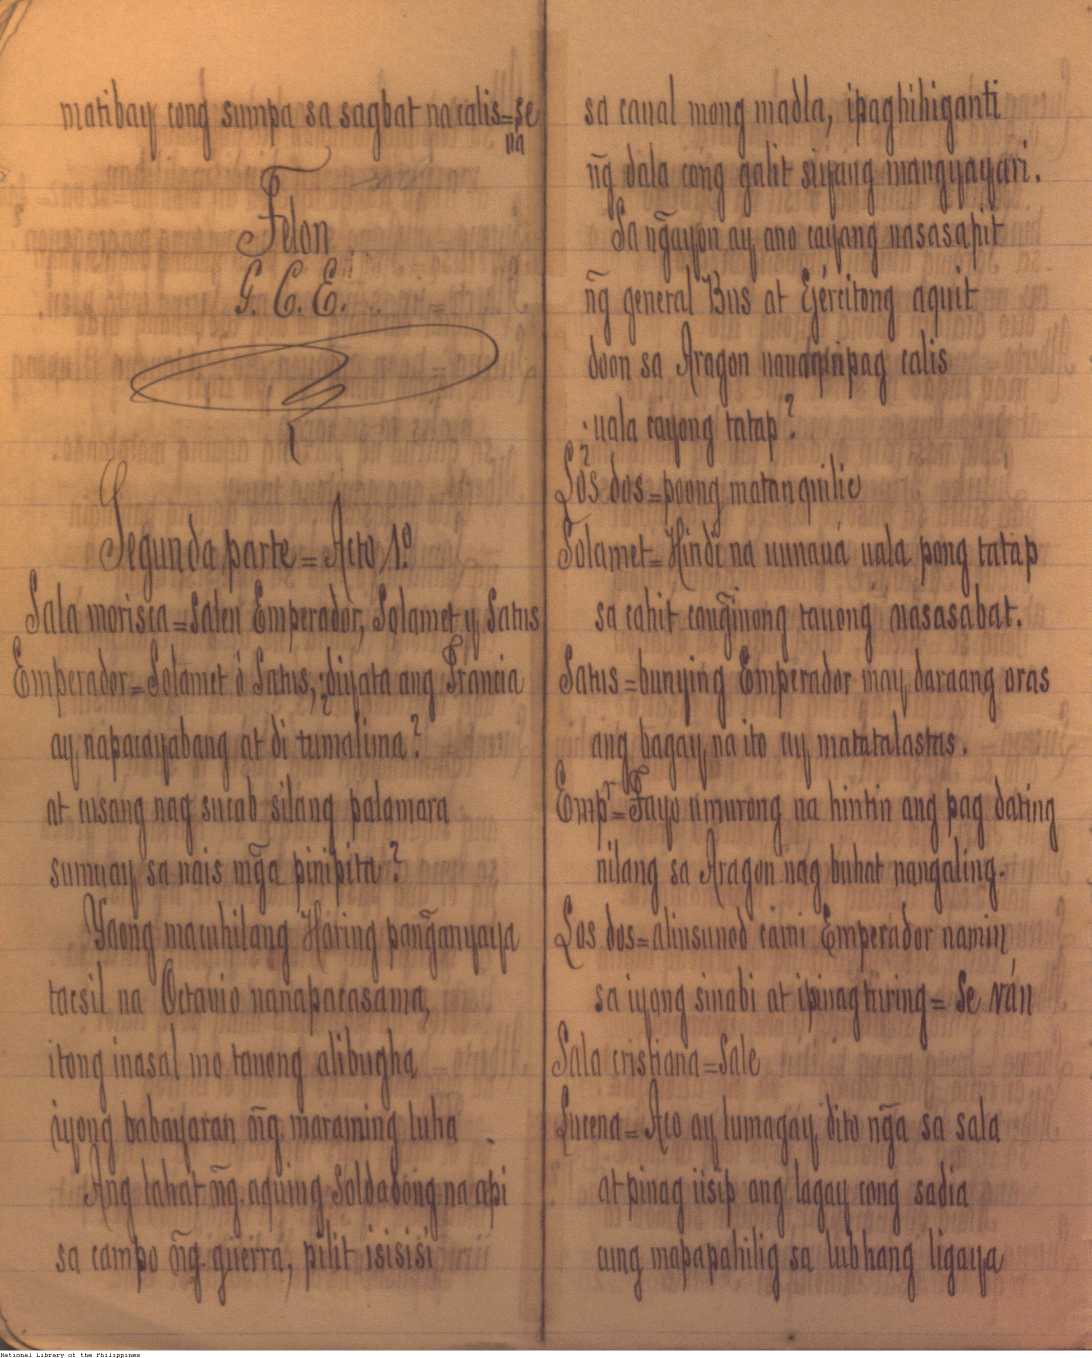 matibay cong sumpa sa sagbat na calis=se
va
Felon
G. C. E.
Segunda parte = Acto 1.º
Sala morisca=Salen Emperador, Solamet y Satus
Emperador=Solamet ò Satus, ¿diyata ang Francia
ay napacayabang at di tumalima?
at cusang nag sucab silang palamara
sumuay sa nais m̃ga pinipita?
Yaong macuhilang Haring pan̄ganyaya
tacsil na Octavio nanapacasama,
itong inasal mo tauong alibugha,
iyong babayaran n̄g. maraming luha.
Ang lahat n̄g. aquing Soldadong na api
sa campo n̄g. guerra, pilit isisisi
sa canal mong madla, ipaghihiganti
n̄g dala cong galit siyang mangyayari.
Sa n̄gayon ay ano cayang nasasapit
n̄g general Bus at Ejércitong aquit
doon sa Aragon nanag pipag calis
¿uala cayong tatap?
Los 2 dos=poong matanquilic
Solamet=Hindi na uunauá uala pong tatap
sa cahit can̄ginong tauong nasasabat.
Satus=bunying Emperador may daraang oras
ang bagay na ito ay matatalastas.
Empr=Tayo umurong na hintin ang pag dating
nilang sa Aragon nag buhat nangaling.
Los dos=alinsunod cami Emperador namin,
sa iyong sinabi at ipinagturing= Se ván
Sala cristiana=Sale
Lucena=Aco ay lumagay dito n̄ga sa sala
at pinag iisip ang lagay cong sadia
aung mapapahilig sa lubhang ligaya
National Library of the Philippines